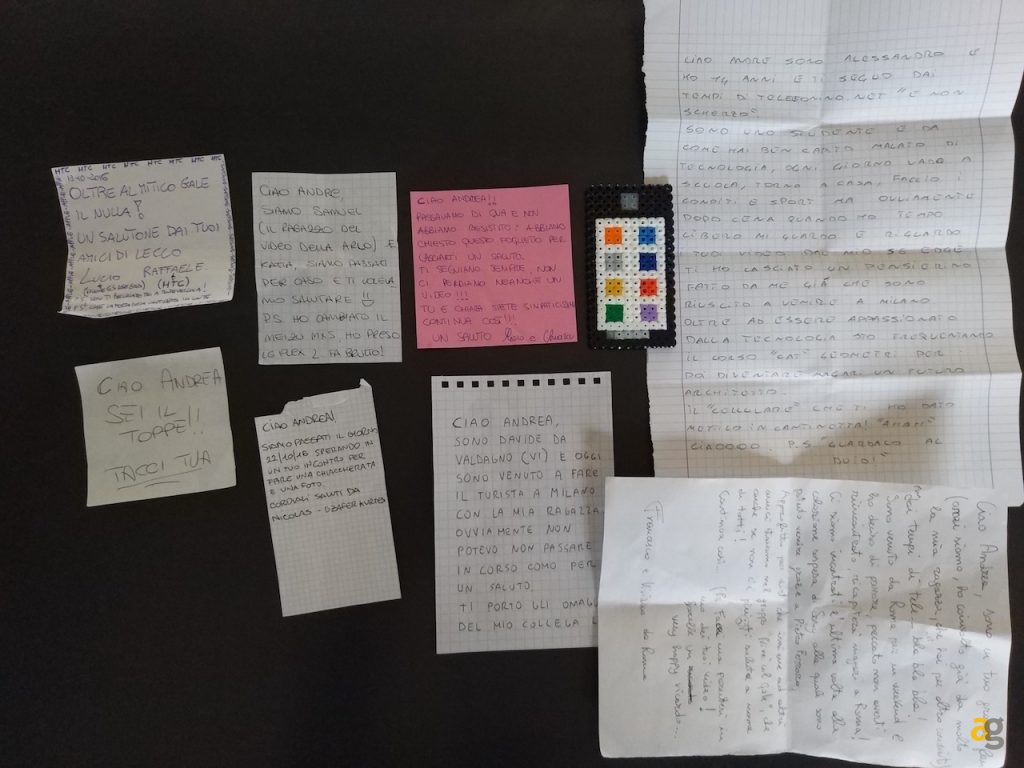 HTC HTC HTC HTC HTC HTC
OLTRE AL MITICO GALE
IL NULLA!
UN SALUTONE DAI TUOI
AMICI DI LECCO
LUCIO RAFFAELE
(HTC)
CIAO ANDRE,
SIAMO SAMUEL
(IL RAGAZZO DEL
VIDEO DELLA ARLO) E
KATIA, SIAMO PASSATI
PER CASO E TI VOLEVA
MO SALUTARE !!
P.S. HO CAMBIATO IL
MEIZU MX5. HO PRESO
LG FLEX 2 FA BRUTO!
CIAO ANDREA!!
PASSAVAMO DI QUA E NON
ABBIAMO RESISTITO: ABBIAMO
CHIESTO QUESTO FOGLIETTO PER
LASCIARTI UN SALUTO.
TI SEGUIAMO SEMPRE, NON
CI PERDIAMO NEANCHE UN
VIDEO!!!
TU E CHIARA SIETE SIMPATICISSIMI
CONTINUA COSÌ!!!
UN SALUTO
CIAO ANDRE SONO ALESSANDRO E
HO 14 ANNI E TI SEGUO DAI
TEMPI DI TELEFONINO.NET "E NON
SCHERZO".
SONO UNO STUDENTE E DA
COME HAI BEN CAPITO MALATO DI
TECNOLOGIA OGNI GIORNO VADO A
SCUOLA, TORNO A CASA, FACCIO I
COMPITI E SPORT MA OVVIAMENTE
DOPO CENA QUANDO HO TEMPO
LIBERO MI GUARDO E RIGUARDO
I TUOI VIDEO DAL MIO S6 EDGE
TI HO LASCIATO UN PENSIERINO
FATTO DA ME GIÀ CHE SONO
RIUSCITO A VENIRE A MILANO
OLTRE AD ESSERE APPASSIONATO
DALLA TECNOLOGIA STO FREQUENTANDO
IL CORSO "CAT" GEOMETRI PER
POI DIVENTARE MAGARI UN FUTURO
ARCHITETTO.
IL "CELLULARE" CHE TI HO DATO
METTILO IN CANTINETTA!
CIAOOOO P.S "GUARDALO AL
BUIO!"
CIAO ANDREA
SEI IL
TOPPE!!
TACCI TUA
CIAO ANDREA!
SIAMO PASSATI IL GIORNO
22/10/16 SPERANDO IN
UN TUO INCONTRO PER
FARE UNA CHIACCHERATA
E UNA FOTO.
CORDIALI SALUTI DA
NICOLAS -
CIAO ANDREA,
SONO DAVIDE DA
VALDAGNO (VI) E OGGI
SONO VENUTO A FARE
IL TURISTA A MILANO
CON LA MIA RAGAZZA.
OVVIAMENTE NON
POTEVO NON PASSARE
IN CORSO COMO PER
UN SALUTO.
TI PORTO GLI OMAGG
DEL MIO COLLEGA L
Ciao Andrea, sono un tuo
(anzi siamo, ho coinvolto già da molto
la mia ragazza, che hai per altro
dai tempi di tele... bla bla bla!
Sono venuto da Roma per un weekend e
ho deciso di passare, peccato non averti
rincontrato, ricapiterà magari a Roma!
Ci siamo incontrati l'ultima volta alla
di tutti!
Continua così
uno dei tuoi video!
very happy
Francesco e da Roma
ag